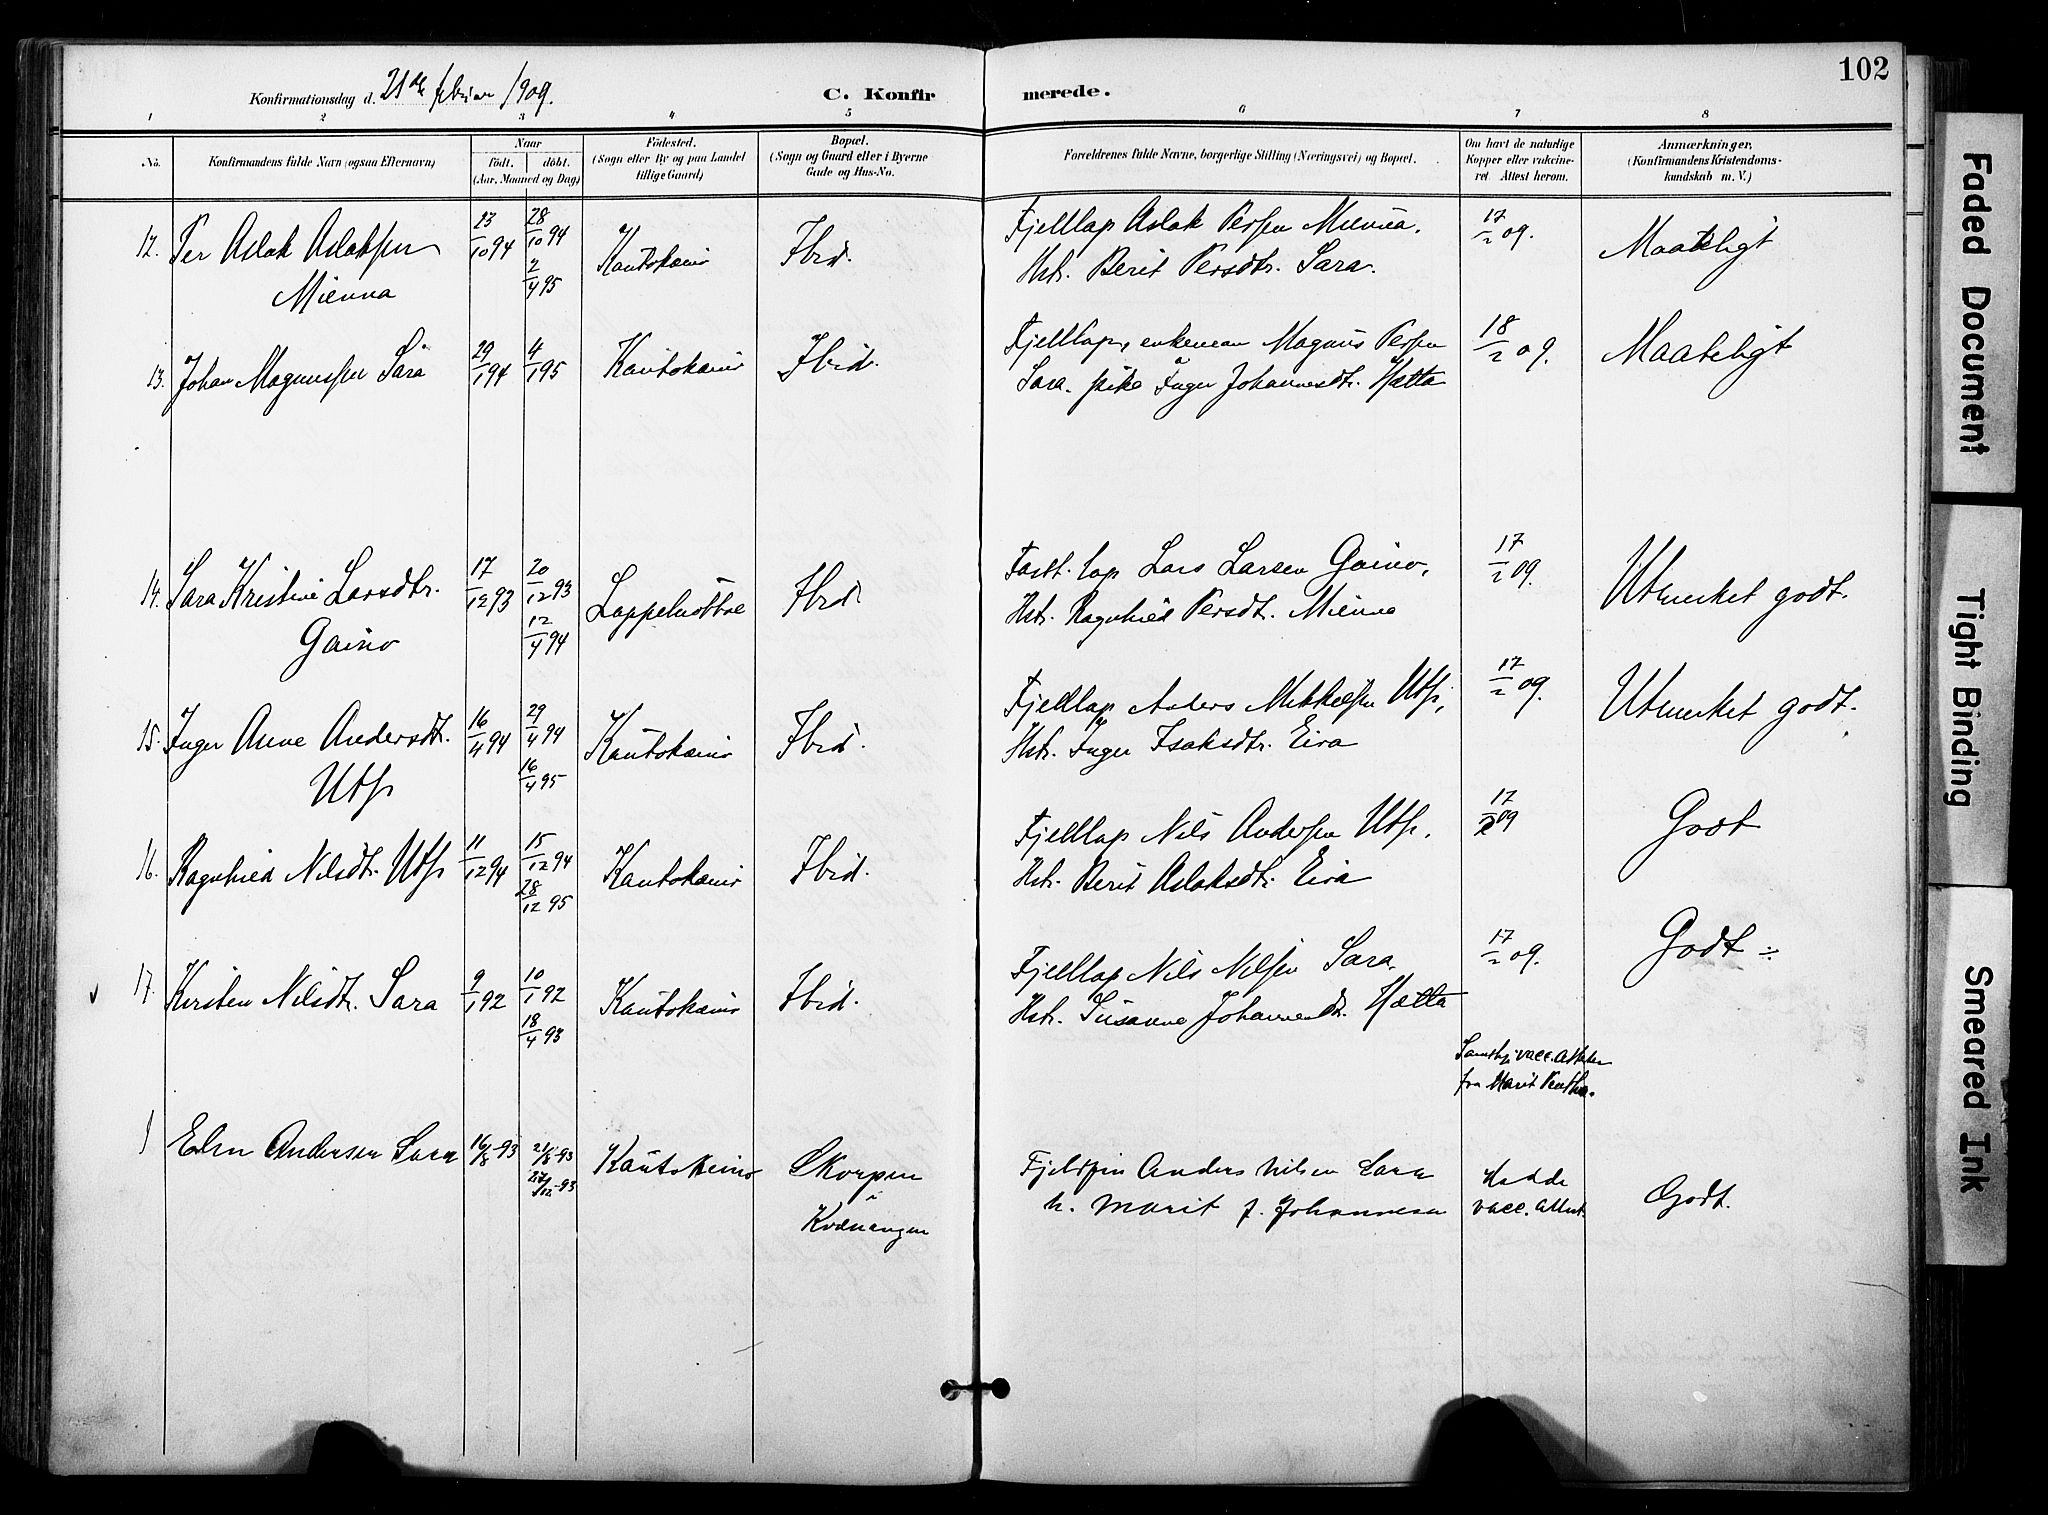 102
Konfirmationsdag d. 21de februar 1909.
C. Konfirmerede.
1 2 3 4 5 6 7 8
No. Konfirmandens fulde Navn (ogsaa Efternavn)
Naar
født. døbt.
(Aar, Maaned og Dag)
Fødested.
(Sogn eller By og paa Landet
tillige Gaard)
Bopæl.
(Sogn og Gaard eller i Byerne
Gade og Hus-No.
Forældrenes fulde Navne, borgerlige Stilling (Næringsvei) og Bopæl.
Om havt de naturlige
Kopper eller vakcine-
ret. Attest herom.
Anmærkninger,
(Konfirmandens Kristendoms-
kundskab m. V.)
12. Per Aslak Aslaksen 23/10 94 28/10 94 Kautokeino Ibid. Fjellap Aslak Persen Mienna. 17/2 09. Maateligt
Mienna 2/4 95 Hst. Berit Persdtr. Sara.
13. Johan Magnussen Sara 29/1 94 4/1 95 Kautokeino Ibid. Fjellap, enkeman Magnus Persen 18/2 09. Maateligt
Sara. pike Inger Johannesdt. Hætta
14. Sara Kristine Larsdtr. 17/12 93 20/12 93 Lappeluobbal Ibid. Fastb. lap Lars Larsen Gaino, 17/2 09. Utmerket godt.
Gaino 12/4 94 Hst. Ragnhild Persdt. Mienna
15. Inger Anne Andersdt. 16/4 94 29/4 94 Kautokeino Ibid. Fjellap Anders Mikkelsen Utsi, 17/2 09. Utmerket godt.
Utsi 16/4 95 Hst. Inger Isaksdtr. Eira
16. Ragnhild Nilsdt. Utsi 11/12 94 15/12 94 Kautokeino Ibid. Fjellap Nils Andersen Utsi. 17/2 09 Godt
28/12 95 Hst. Berit Aslaksdt. Eira
17. Kirsten Nilsdt. Sara 9/1 92 10/1 92 Kautokeino Ibid. Fjellap Nils Nilsen Sara. 17/2 09. Godt ÷
18/4 93 Hst. Susanne Johannesdt. Hætta
vacc. attester
fra Marit
1 Elen Andersen Sara 16/8-93 21/8-93 Kautokeino Skorpen Fjeldfin Anders Nilsen Sara Hadde Godt.
27/12-93 i h. Marit f. Johannesen vacc. attest.
Kvænangen
Faded Document
Tight Binding
Smeared Ink